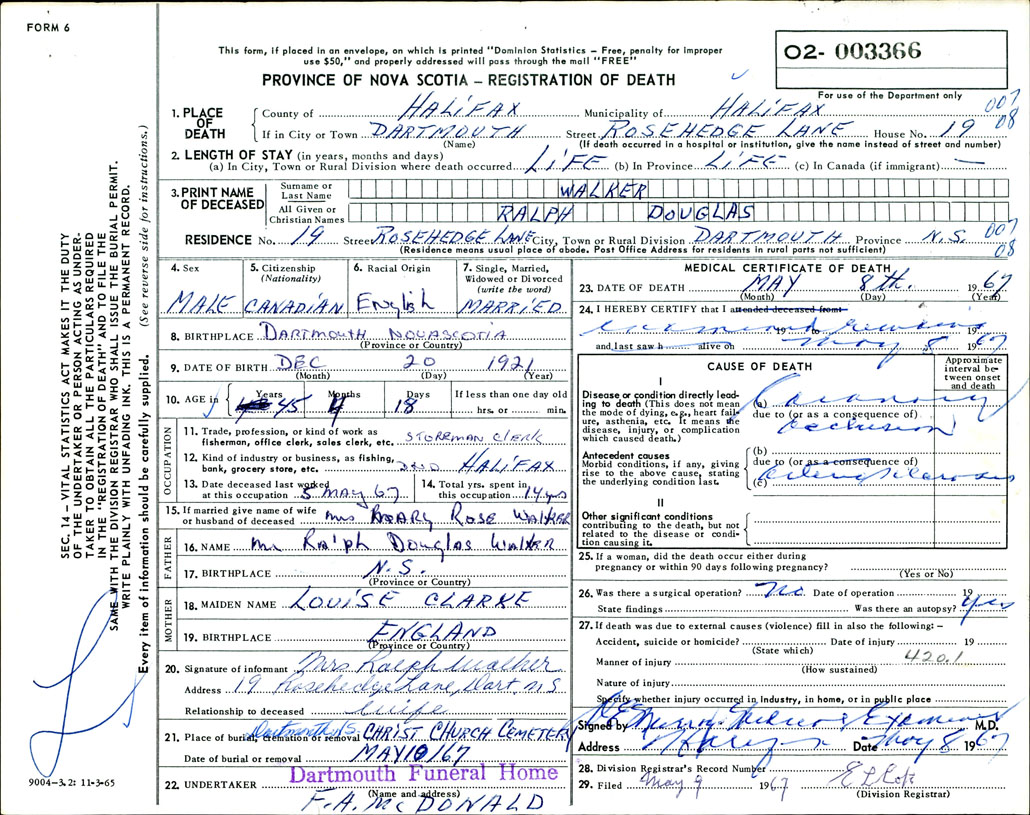 FORM 6
This form, if placed in an envelope, on which is printed "Dominion Statistics – Free, penalty for improper
use $50," and properly addressed will pass through the mail "FREE"
PROVINCE OF NOVA SCOTIA – REGISTRATION OF DEATH
02- 003366
For use of the Department only
007
08
1. PLACE OF DEATH
County of HALIFAX Municipality of HALIFAX
If in City or Town DARTMOUTH Street ROSEHEDGE LANE House No. 19
(Name) (If death occurred in a hospital or institution, give the name instead of street and number)
2. LENGTH OF STAY (in years, months and days)
(a) In City, Town or Rural Division where death occurred LIFE (b) In Province LIFE (c) In Canada (if immigrant) —
3. PRINT NAME OF DECEASED
Surname or Last Name WALKER
All Given or Christian Names RALPH DOUGLAS
RESIDENCE No. 19 Street ROSEHEDGE LANE City, Town or Rural Division DARTMOUTH Province N.S.
007
08
(Residence means usual place of abode. Post Office Address for residents in rural parts not sufficient)
4. Sex MALE
5. Citizenship (Nationality) CANADIAN
6. Racial Origin English
7. Single, Married, Widowed or Divorced (write the word) MARRIED
8. BIRTHPLACE DARTMOUTH NOVA SCOTIA
(Province or Country)
9. DATE OF BIRTH DEC 20 1921
(Month) (Day) (Year)
10. AGE in Years 45 Months 4 Days 18 If less than one day old
hrs. or min.
OCCUPATION
11. Trade, profession, or kind of work as
fisherman, office clerk, sales clerk, etc. STOREMAN CLERK
12. Kind of industry or business, as fishing,
bank, grocery store, etc. HALIFAX
13. Date deceased last worked
at this occupation 5 MAY 67
14. Total yrs. spent in
this occupation 14 yrs
15. If married give name of wife
or husband of deceased Mrs MARY ROSE WALKER
FATHER
16. NAME Mr Ralph Douglas Walker
17. BIRTHPLACE N.S.
(Province or Country)
MOTHER
18. MAIDEN NAME LOUISE CLARKE
19. BIRTHPLACE ENGLAND
(Province or Country)
20. Signature of informant Mrs Ralph Walker
Address 19 Rosehedge Lane, Dart, NS
Relationship to deceased Wife
21. Place of burial, cremation or removal Dartmouth NS CHRIST CHURCH CEMETERY
Date of burial or removal MAY 10/67
22. UNDERTAKER Dartmouth Funeral Home
(Name and address)
F.A. McDONALD
MEDICAL CERTIFICATE OF DEATH
23. DATE OF DEATH MAY 8th. 1967
(Month) (Day) (Year)
24. I HEREBY CERTIFY that I attended deceased from
examined 19 to 19
and last saw h alive on May 8 1967
CAUSE OF DEATH
Approximate interval between onset and death
I
Disease or condition directly leading to death (This does not mean the mode of dying, e.g., heart failure, asthenia, etc. It means the disease, injury, or complication which caused death.)
(a) Coronary
due to (or as a consequence of)
occlusion
Antecedent causes
Morbid conditions, if any, giving rise to the above cause, stating the underlying condition last.
(b)
due to (or as a consequence of)
(c)
II
Other significant conditions
contributing to the death, but not related to the disease or condition causing it.
25. If a woman, did the death occur either during
pregnancy or within 90 days following pregnancy?
(Yes or No)
26. Was there a surgical operation? No Date of operation 19
State findings Was there an autopsy? Yes
27. If death was due to external causes (violence) fill in also the following: –
Accident, suicide or homicide? Date of injury 19
(State which)
Manner of injury 420.1
(How sustained)
Nature of injury
Specify whether injury occurred in Industry, in home, or in public place
Signed by Medical Examiner M.D.
Address Date May 8 1967
28. Division Registrar's Record Number
29. Filed May 9 1967
(Division Registrar)
SEC. 14 – VITAL STATISTICS ACT MAKES IT THE DUTY
OF THE UNDERTAKER OR PERSON ACTING AS UNDER-
TAKER TO OBTAIN ALL THE PARTICULARS REQUIRED
IN THE "REGISTRATION OF DEATH" AND TO FILE THE
SAME WITH THE DIVISION REGISTRAR WHO SHALL ISSUE THE BURIAL PERMIT.
WRITE PLAINLY WITH UNFADING INK. THIS IS A PERMANENT RECORD.
Every item of information should be carefully supplied. (See reverse side for instructions.)
9004–3.2: 11-3-65